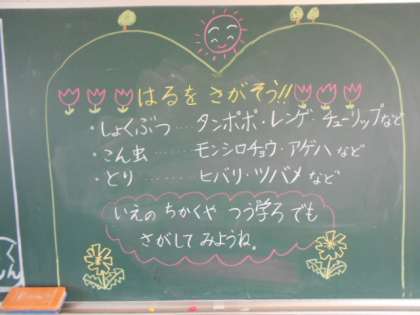 はるを さがそう!!
・しょくぶつ……タンポポ・レンゲ・チューリップなど
・こん虫……モンシロチョウ・アゲハなど
・とり……ヒバリ・ツバメなど
いえの ちかくや つう学ろでも
さがして みようね。